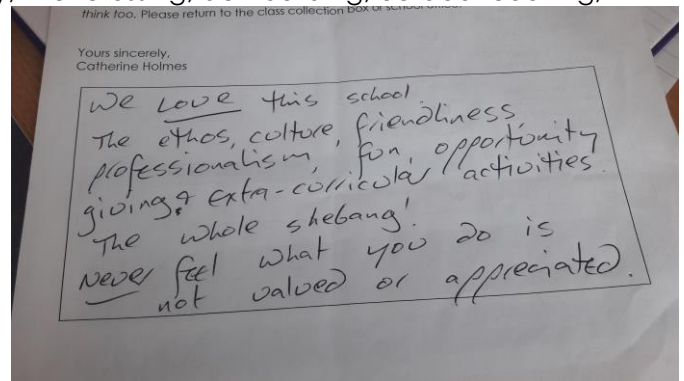 think too. Please return to the class collection box or school
Yours sincerely,
Catherine Holmes
We LOVE this school
The ethos, culture, friendliness,
professionalism, fun, opportunity
giving & extra-curricular activities.
The whole shebang!
Never feel what you do is
not valued or appreciated.